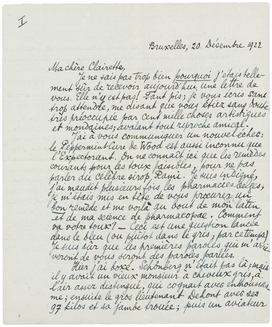 I
Bruxelles, 20 Décembre 1922
Ma chère Clairette,
Je ne sais pas trop bien pourquoi j'étais telle-
ment sûr de recevoir aujourd'hui une lettre de
vous. Elle n'y est pas! Tant pis, je vous écris sans
trop attendre, me disant que vous êtes sans doute
très préoccupée par cent mille choses artistiques
et mondaines, avalant tout reproche amical.
J'ai à vous communiquer un nouvel échec:
le Peppermintlure de Wood est aussi inconnu que
l'Expectorant. On ne connaît ici que les remèdes
courants pour les toux faciles, pour ne pas
parler du célèbre sirop, Rami. Je suis indigné,
j'ai maudit plusieurs fois les pharmacies belges,
je m'étais mis en tête de vous procurer un
bon remède et me voilà au bout de mon latin
et de ma science de pharmacopée. Comment
va votre toux? — Ceci est une question lancée
dans le bleu (ou plutôt dans le gris, par ce temps)
Je suis sûr que les premières paroles qui m'arri-
veront de vous seront des paroles parlées.
Hier j'ai boxé. Schönberg n'était pas là; mais
il y avait un vieux monsieur à cheveux gris, à
l'air assez distingué, qui cognait avec enthousias-
me; ensuite le gros lieutenant Dehont avec ses
97 kilos et sa jambe trouée; puis un aviateur